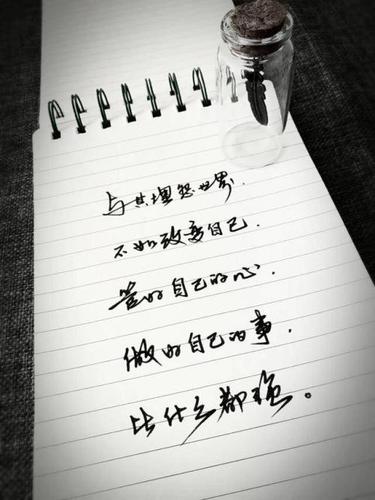 与其埋怨世界，
不如改变自己。
管好自己的心，
做好自己的事，
比什么都强。